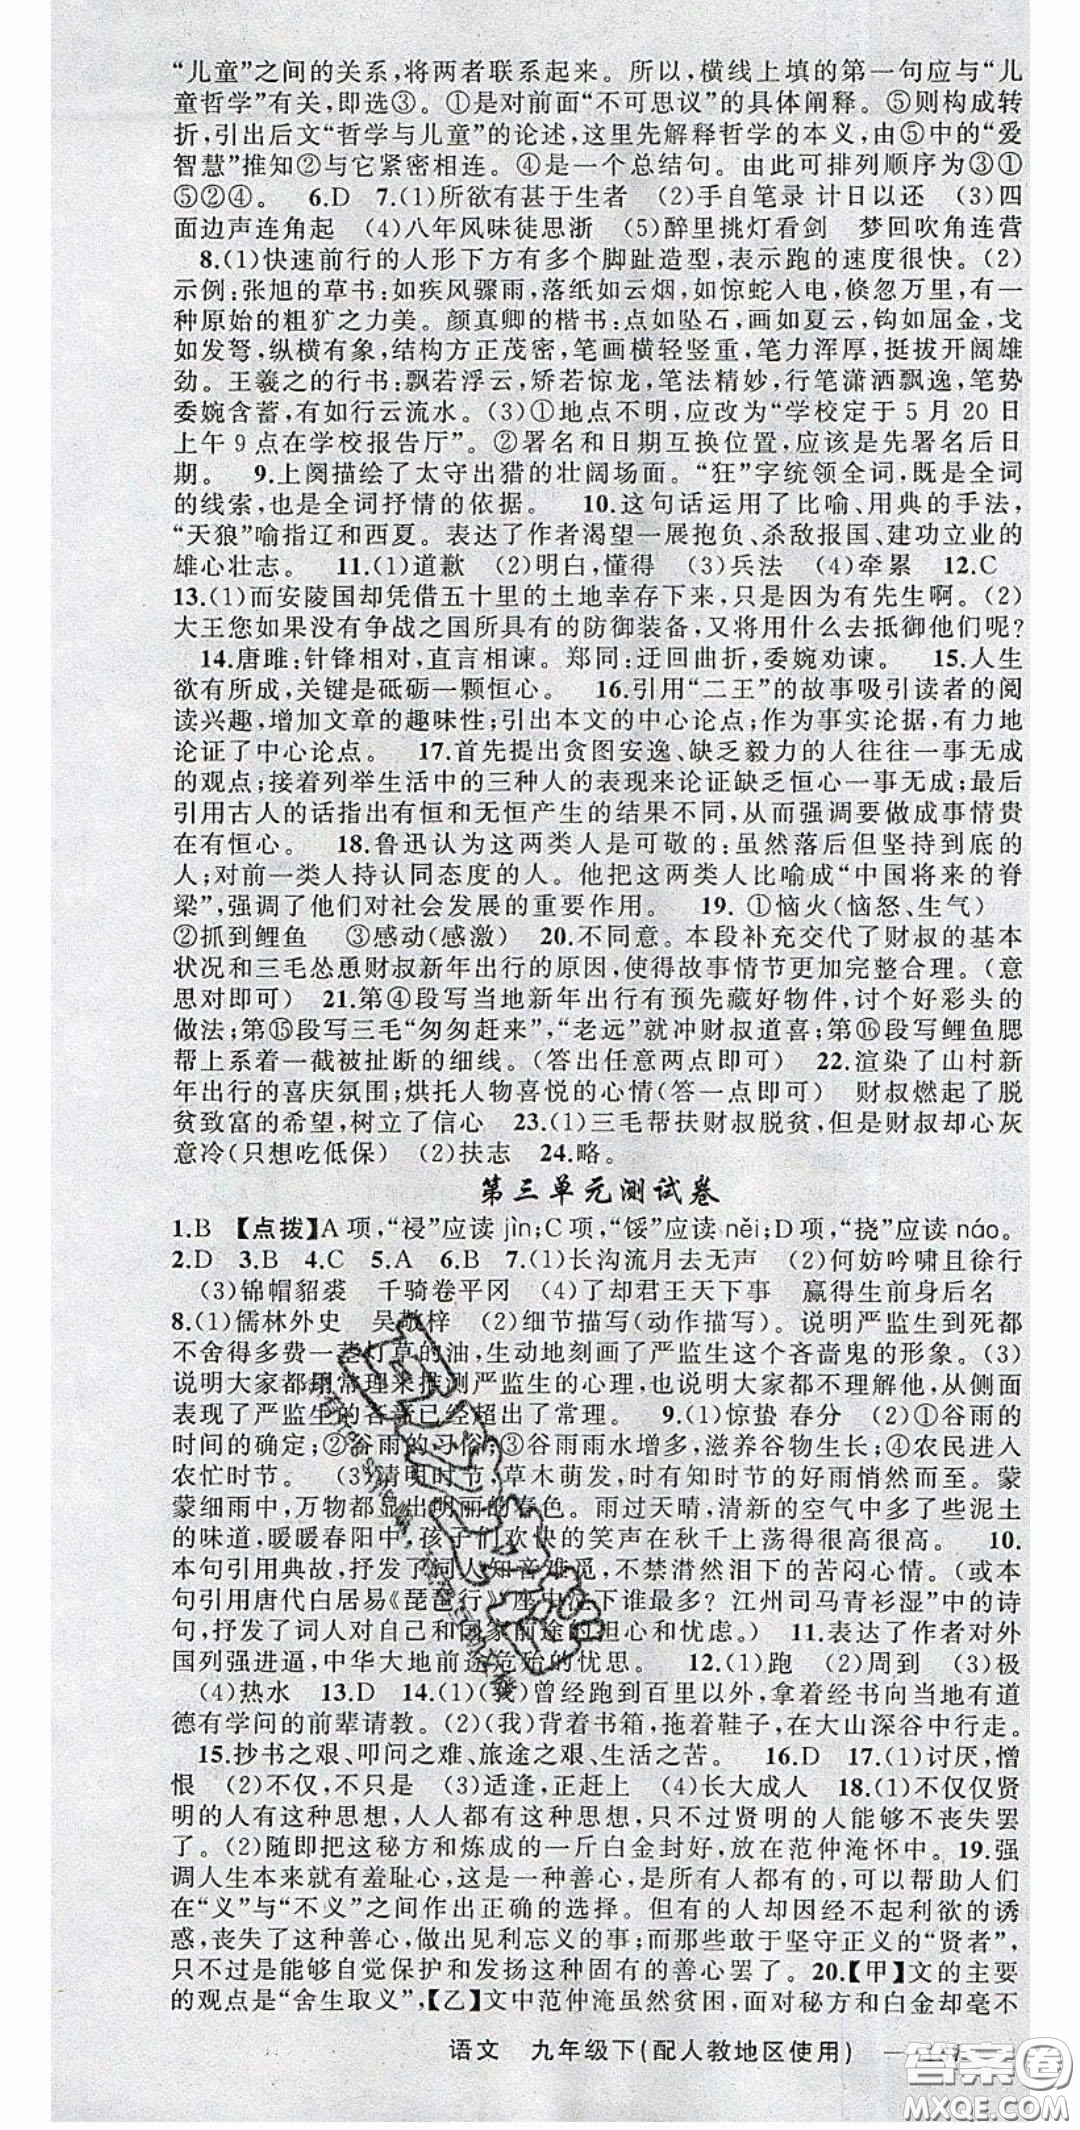 “儿童”之间的关系,将两者联系起来。所以,横线上填的第一句应与“儿
童哲学”有关,即选③。①是对前面“不可思议”的具体阐释。⑤则构成转
折,引出后文“哲学与儿童”的论述,这里先解释哲学的本义,由⑤中的“爱
智慧”推知②与它紧密相连。④是一个总结句。由此可排列顺序为③①
⑤②④。 6.D 7.(1)所欲有甚于生者 (2)手自笔录 计日以还 (3)四
面边声连角起 (4)八年风味徒思浙 (5)醉里挑灯看剑 梦回吹角连营
8.(1)快速前行的人形下方有多个脚趾造型,表示跑的速度很快。(2)
示例:张旭的草书:如疾风骤雨,落纸如云烟,如惊蛇入电,倏忽万里,有一
种原始的粗犷之力美。颜真卿的楷书:点如坠石,画如夏云,钩如屈金,戈
如发弩,纵横有象,结构方正茂密,笔画横轻竖重,笔力浑厚,挺拔开阔雄
劲。王羲之的行书:飘若浮云,矫若惊龙,笔法精妙,行笔潇洒飘逸,笔势
委婉含蓄,有如行云流水。(3)①地点不明,应改为“学校定于5月20日
上午9点在学校报告厅”。②署名和日期互换位置,应该是先署名后日
期。 9.上阕描绘了太守出猎的壮阔场面。“狂”字统领全词,既是全词
的线索,也是全词抒情的依据。 10.这句话运用了比喻、用典的手法,
“天狼”喻指辽和西夏。表达了作者渴望一展抱负、杀敌报国、建功立业的
雄心壮志。 11.(1)道歉 (2)明白,懂得 (3)兵法 (4)牵累 12.C
13.(1)而安陵国却凭借五十里的土地幸存下来,只是因为有先生啊。(2)
大王您如果没有争战之国所具有的防御装备,又将用什么去抵御他们呢?
14.唐雎:针锋相对,直言相谏。郑同:迂回曲折,委婉劝谏。 15.人生
欲有所成,关键是砥砺一颗恒心。 16.引用“二王”的故事吸引读者的阅
读兴趣,增加文章的趣味性;引出本文的中心论点;作为事实论据,有力地
论证了中心论点。 17.首先提出贪图安逸、缺乏毅力的人往往一事无成
的观点;接着列举生活中的三种人的表现来论证缺乏恒心一事无成;最后
引用古人的话指出有恒和无恒产生的结果不同,从而强调要做成事情贵
在有恒心。 18.鲁迅认为这两类人是可敬的:虽然落后但坚持到底的
人;对前一类人持认同态度的人。他把这两类人比喻成“中国将来的脊
梁”,强调了他们对社会发展的重要作用。 19.①恼火(恼怒、生气)
②抓到鲤鱼 ③感动(感激) 20.不同意。本段补充交代了财叔的基本
状况和三毛怂恿财叔新年出行的原因,使得故事情节更加完整合理。(意
思对即可) 21.第④段写当地新年出行有预先藏好物件,讨个好彩头的
做法;第⑮段写三毛“匆匆赶来”,“老远”就冲财叔道喜;第⑯段写鲤鱼鳃
帮上系着一截被扯断的细线。(答出任意两点即可) 22.渲染了山村新
年出行的喜庆氛围;烘托人物喜悦的心情(答一点即可) 财叔燃起了脱
贫致富的希望,树立了信心 23.(1)三毛帮扶财叔脱贫,但是财叔却心灰
意冷(只想吃低保) (2)扶志 24.略。
第三单元测试卷
1.B 【点拨】A项,“祲”应读jìn;C项,“馁”应读něi;D项,“挠”应读náo。
2.D 3.B 4.C 5.A 6.B 7.(1)长沟流月去无声 (2)何妨吟啸且徐行
(3)锦帽貂裘 千骑卷平冈 (4)了却君王天下事 赢得生前身后名
8.(1)儒林外史 吴敬梓 (2)细节描写(动作描写)。说明严监生到死都
不舍得多费一茎灯草的油,生动地刻画了严监生这个吝啬鬼的形象。(3)
说明大家都用常理来推测严监生的心理,也说明大家都不理解他,从侧面
表现了严监生的吝啬已经超出了常理。 9.(1)惊蛰 春分 (2)①谷雨的
时间的确定;②谷雨的习俗;③谷雨雨水增多,滋养谷物生长;④农民进入
农忙时节。 (3)清明时节,草木萌发,时有知时节的好雨悄然而至。蒙
蒙细雨中,万物都显出明丽的春色。雨过天晴,清新的空气中多了些泥土
的味道,暖暖春阳中,孩子们欢快的笑声在秋千上荡得很高很高。 10.
本句引用典故,抒发了词人知音难觅,不禁潸然泪下的苦闷心情。(或本
句引用唐代白居易《琵琶行》“座中泣下谁最多?江州司马青衫湿”中的诗
句,抒发了词人对自己和国家前途的担心和忧虑。) 11.表达了作者对外
国列强进逼,中华大地前途危殆的忧思。 12.(1)跑 (2)周到 (3)极
(4)热水 13.D 14.(1)(我)曾经跑到百里以外,拿着经书向当地有道
德有学问的前辈请教。(2)(我)背着书箱,拖着鞋子,在大山深谷中行走。
15.抄书之艰、叩问之难、旅途之艰、生活之苦。 16.D 17.(1)讨厌,憎
恨 (2)不仅,不只是 (3)适逢,正赶上 (4)长大成人 18.(1)不仅仅贤
明的人有这种思想,人人都有这种思想,只不过贤明的人能够不丧失罢
了。(2)随即把这秘方和炼成的一斤白金封好,放在范仲淹怀中。 19.强
调人生本来就有羞耻心,这是一种善心,是所有人都有的,可以帮助人们
在“义”与“不义”之间作出正确的选择。但有的人却因经不起利欲的诱
惑,丧失了这种善心,做出见利忘义的事;而那些敢于坚守正义的“贤者”,
只不过是能够自觉保护和发扬这种固有的善心罢了。20.【甲】文的主要
的观点是“舍生取义”,【乙】文中范仲淹虽然贫困,面对秘方和白金却毫不
语文 九年级下(配人教地区使用)
答案圈
MXQE.COM